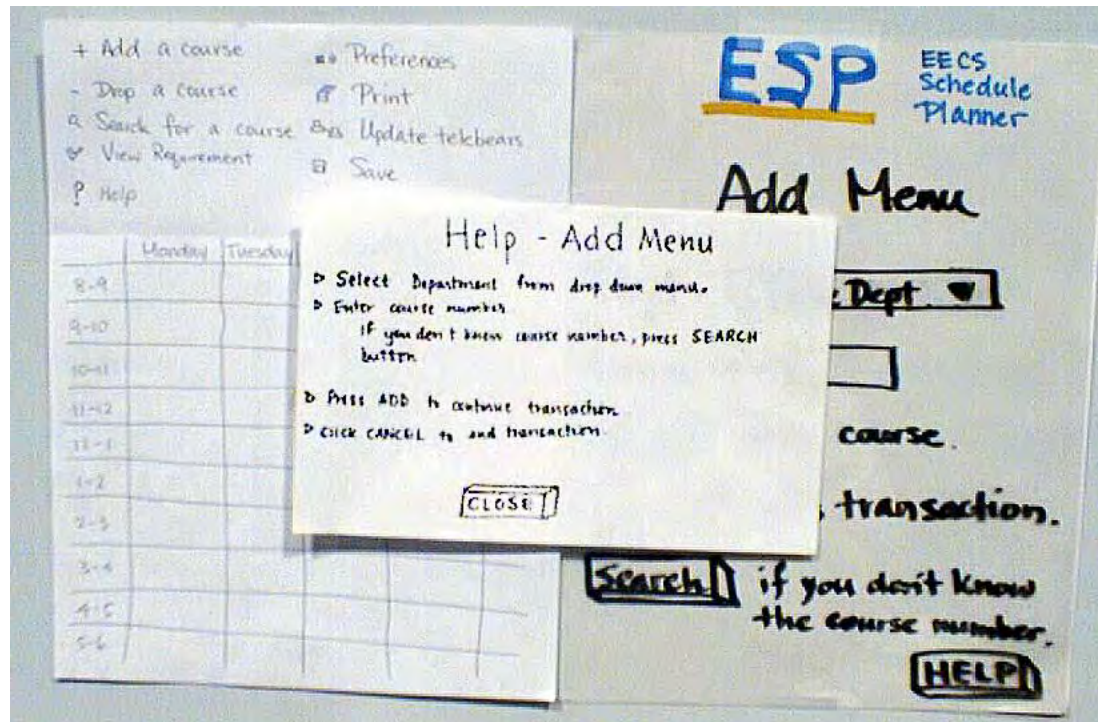 + Add a course
- Drop a course
Search for a course
View Requirement
? Help
Preferences
Print
Update telebears
Save
Monday Tuesday
8-9
9-10
10-11
11-12
12-1
1-2
2-3
3-4
4-5
5-6
Help - Add Menu
Select Department from drop down menu.
Enter course number
if you don't know course number, press SEARCH
button
Press ADD to continue transaction.
Click CANCEL to end transaction.
CLOSE
ESP
EECS
Schedule
Planner
Add Menu
Dept. ▼
course.
transaction.
Search if you don't know
the course number.
HELP